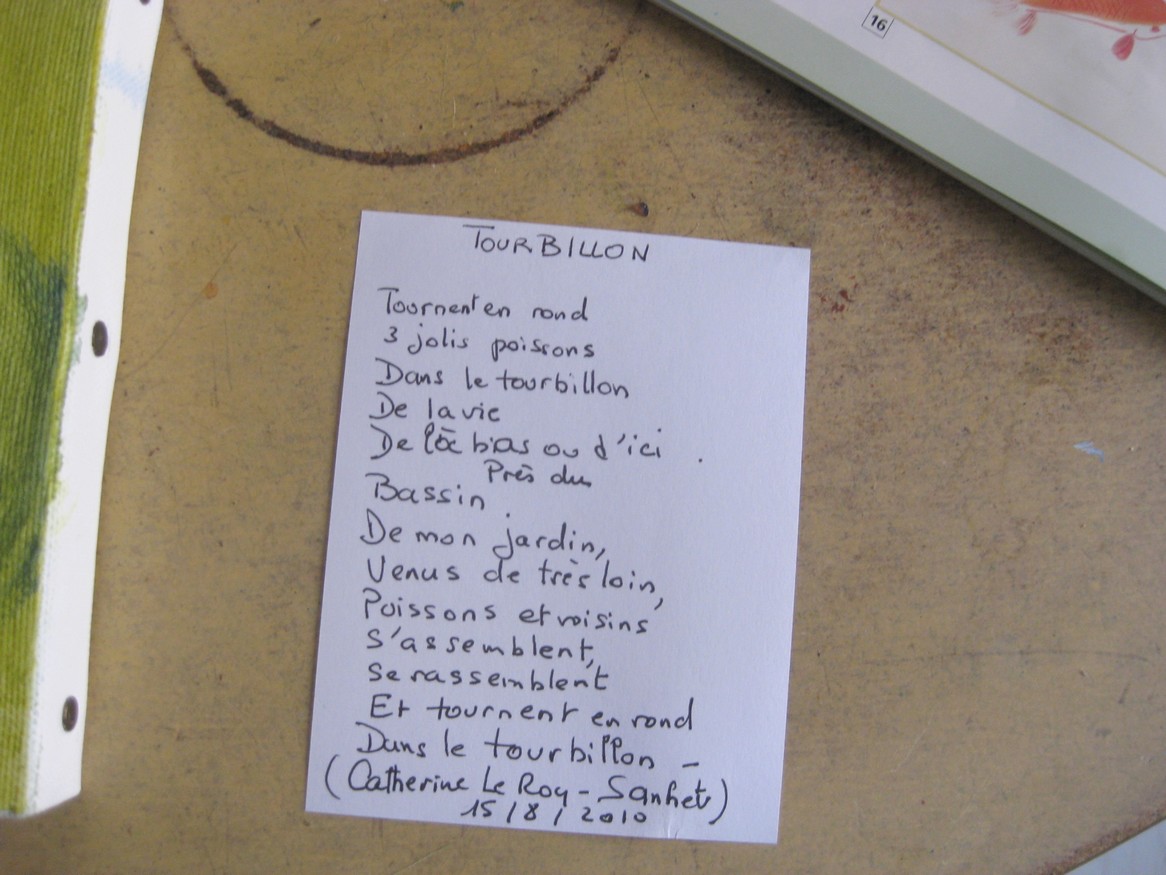 16
TOURBILLON
Tournent en rond
3 jolis poissons
Dans le tourbillon
De la vie
De là bas ou d'ici .
Près du
Bassin
De mon jardin,
Venus de très loin,
Poissons et voisins
S'assemblent,
Se rassemblent
Et tournent en rond
Dans le tourbillon -
(Catherine Le Roy - Sanhet)
15/8/2010